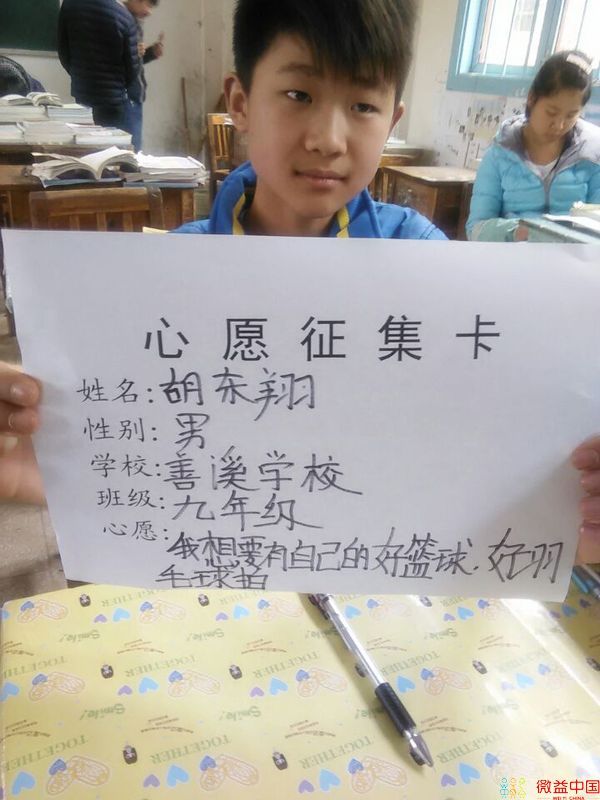 心愿征集卡
姓名:胡东翔
性别:男
学校:善溪学校
班级:九年级
心愿:我想要有自己的好篮球.好羽
毛球拍
Smile!
TOGETHER
微益中国
WE YI CHINA